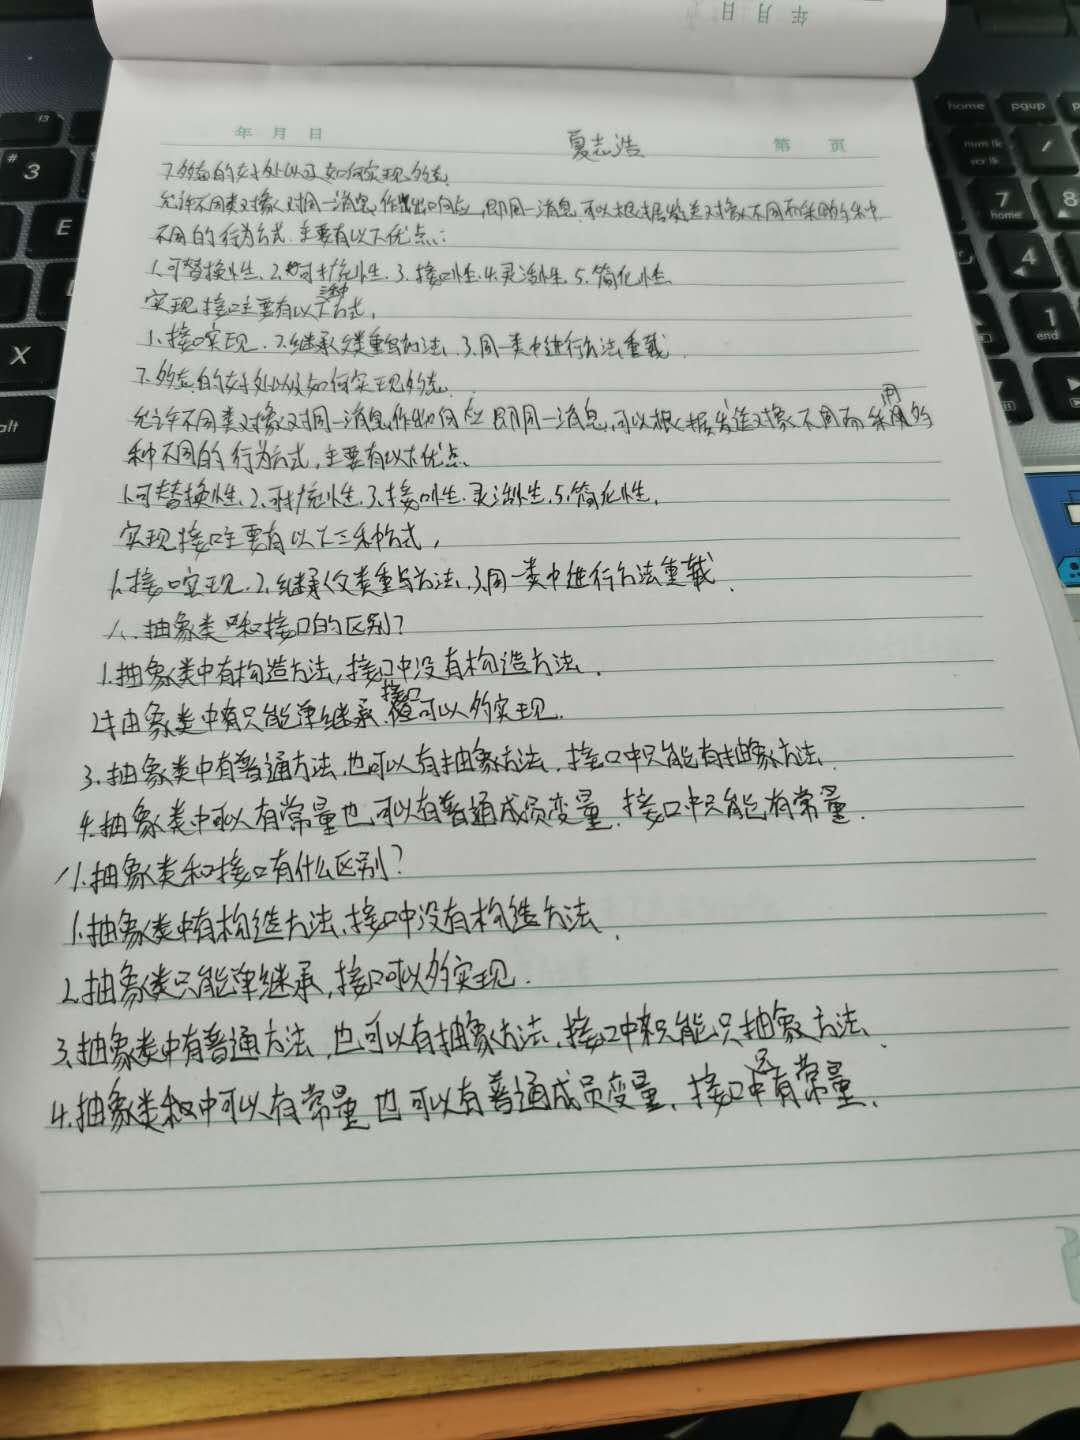 年 月 日
年 月 日 夏志浩 第 页
7.多态的好处以及如何实现多态.
允许不同类对象对同一消息作出响应,即同一消息可以根据发送对象不同而采用多种
不同的行为方式.主要有以下优点:
1.可替换性、2.可扩充性.3.接口性.4.灵活性.5.简化性.
实现接口主要有以下三种方式,
1.接口实现.2.继承父类重写方法.3.同一类中进行方法重载.
7.多态的好处以及如何实现多态.
允许不同类对象对同一消息作出响应 即同一消息,可以根据发送对象不同而采用多
种不同的行为方式,主要有以下优点
1.可替换性、2.可扩充性.3.接口性.灵活性.5.简化性.
实现接口主要有以下三种方式,
1.接口实现.2.继承父类重写方法.3.同一类中进行方法重载.
八.抽象类和接口的区别?
1.抽象类中有构造方法,接口中没有构造方法.
2.抽象类中有只能单继承接口可以多实现.
3.抽象类中有普通方法,也可以有抽象方法.接口中只能有抽象方法.
4.抽象类中可以有常量也可以有普通成员变量.接口中只能有常量.
八.抽象类和接口有什么区别?
1.抽象类中有构造方法,接口中没有构造方法.
2.抽象类只能单继承,接口可以多实现.
3.抽象类中有普通方法,也可以有抽象方法.接口中只能只抽象方法.
4.抽象类中可以有常量 也可以有普通成员变量.接口中只有常量.
f3
# 3
E
X
alt
home pgup
num lk
scr lk
7 home
8
4
1 end